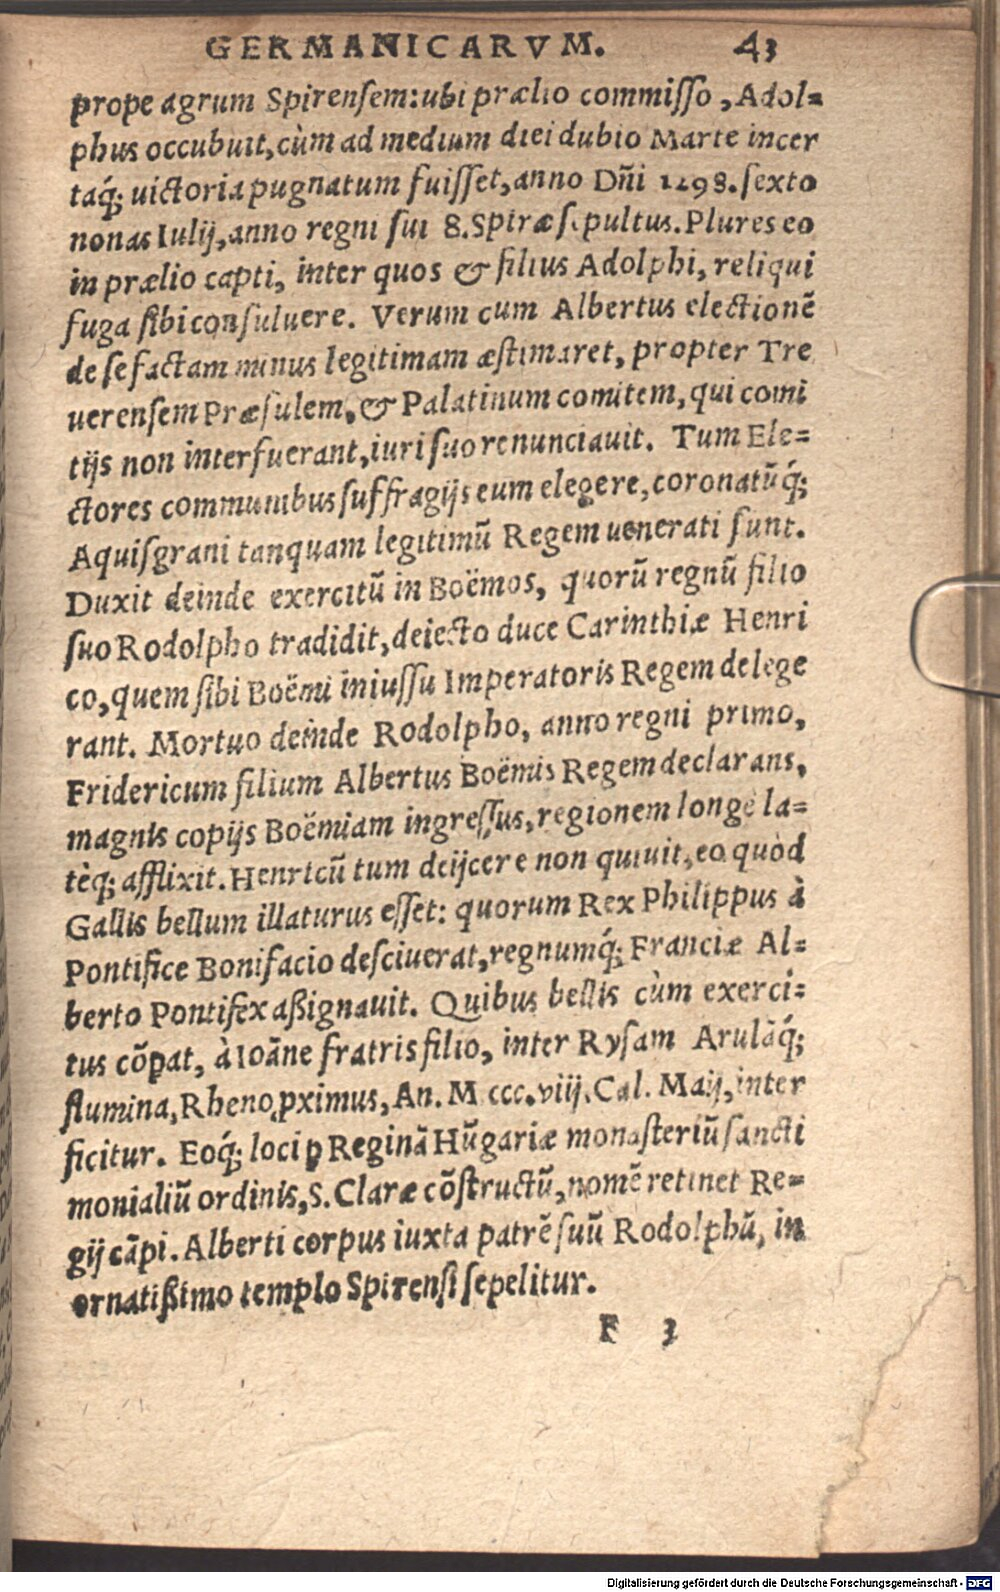 GERMANICARVM. 43
prope agrum Spirensem: ubi prælio commisso, Adol=
phus occubuit, cùm ad medium diei dubio Marte incer
taq́; uictoria pugnatum fuisset, anno Dñi 1298. sexto
nonas Iulij, anno regni sui 8. Spiræ sepultus. Plures eo
in prælio capti, inter quos & filius Adolphi, reliqui
fuga sibi consuluere. Verum cum Albertus electionẽ
de se factam minus legitimam æstimaret, propter Tre
uerensem Præsulem, & Palatinum comitem, qui comi
tijs non interfuerant, iuri suo renunciauit. Tum Ele=
ctores communibus suffragijs eum elegere, coronatũq́;
Aquisgrani tanquam legitimũ Regem uenerati sunt.
Duxit deinde exercitũ in Boëmos, quorũ regnũ filio
suo Rodolpho tradidit, deiecto duce Carinthiæ Henri
co, quem sibi Boëmi iniussu Imperatoris Regem delege
rant. Mortuo deinde Rodolpho, anno regni primo,
Fridericum filium Albertus Boëmis Regem declarans,
magnis copijs Boëmiam ingressus, regionem longè la=
tèq; afflixit. Henricũ tum deijcere non quiuit, eo quòd
Gallis bellum illaturus esset: quorum Rex Philippus à
Pontifice Bonifacio desciuerat, regnumq́; Franciæ Al=
berto Pontifex aßignauit. Quibus bellis cùm exerci=
tus cõpat, à Ioãne fratris filio, inter Rysam Arulãq́;
flumina, Rheno ꝓximus, An. M ccc. viij. Cal. Maij, inter
ficitur. Eoq́; loci ꝑ Reginã Hũgariæ monasteriũ sancti
monialiũ ordinis, S. Claræ cõstructũ, nomẽ retinet Re=
gij cãpi. Alberti corpus iuxta patrẽ suũ Rodolphũ, in
ornatißimo templo Spirensi sepelitur.
F 3
Digitalisierung gefördert durch die Deutsche Forschungsgemeinschaft - DFG